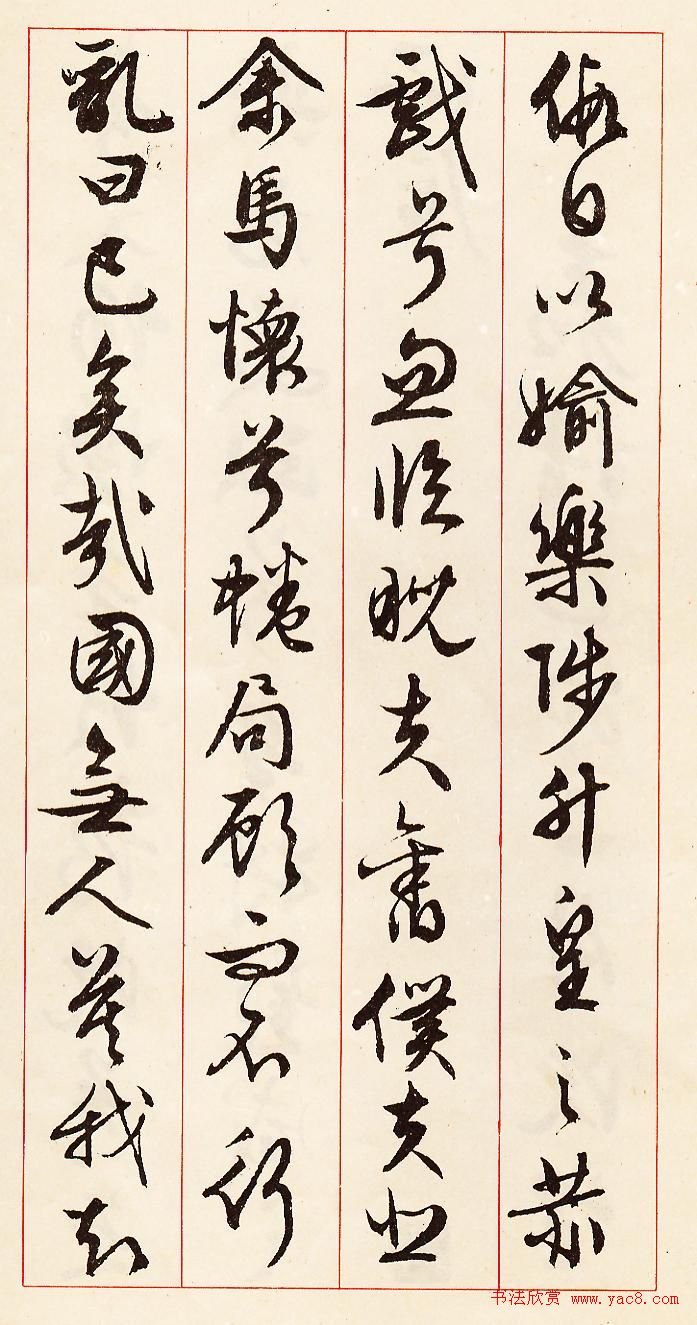 假日以媮樂陟升皇之赫
戲兮忽臨睨夫舊僕夫悲
余馬懷兮蜷局顧而不行
亂曰已矣哉國無人莫我知
书法欣赏 www.yac8.com